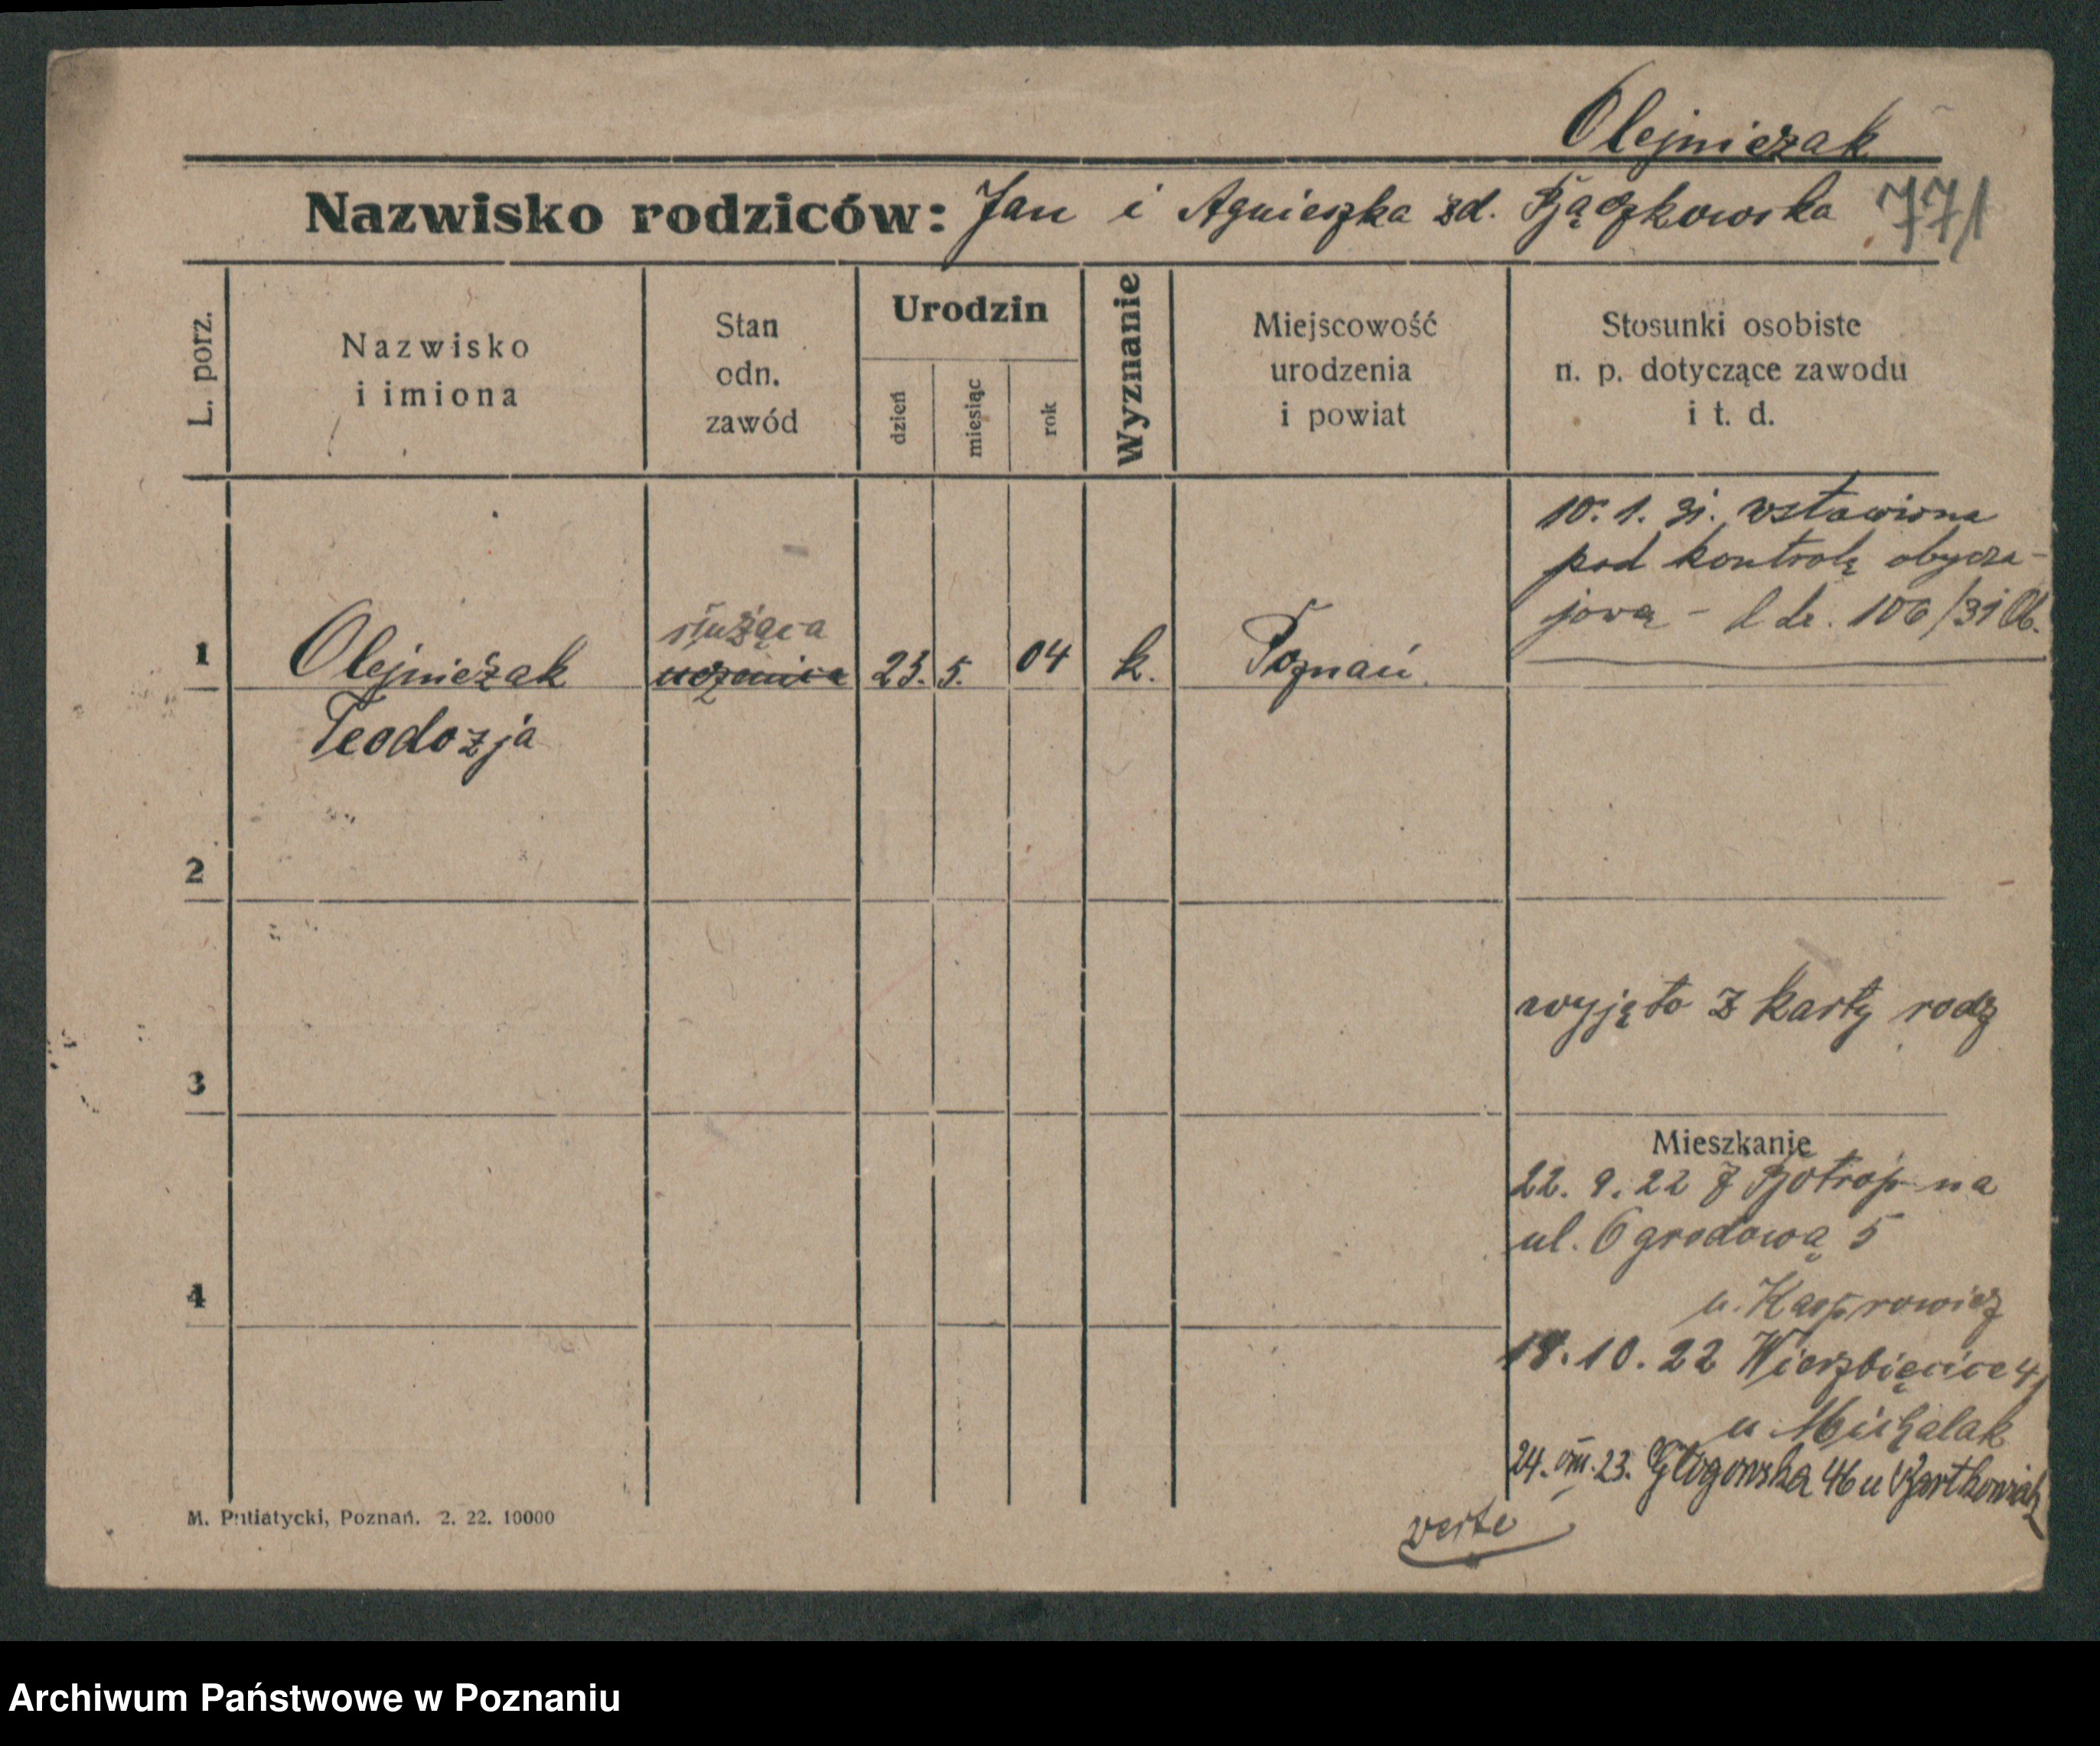 Olejniczak
Nazwisko rodziców: Jan i Agnieszka zd. Bączkowska 771
L. porz.
Nazwisko
i imiona
Stan
odn.
zawód
Urodzin
dzień
miesiąc
rok
Wyznanie
Miejscowość
urodzenia
i powiat
Stosunki osobiste
n. p. dotyczące zawodu
i t. d.
10. 1. 31. wstawiona
pod kontrolę obycza-
jową - l dz. 106/31 Ob.
służąca
1 Olejniczak uczenica 23. 5. 04 k. Poznań
Teodozja
2
wyjęto z karty rodz
3
Mieszkanie
22. 9. 22 z Botrop na
ul. Ogrodową 5
4
u. Kasprowicz
18. 10. 22 Wierzbięcice 4
u Michalak
24. VIII. 23. Głogowska 46 u Bartkowiak
M. Putiatycki, Poznań. 2. 22. 10000
verte
Archiwum Państwowe w Poznaniu